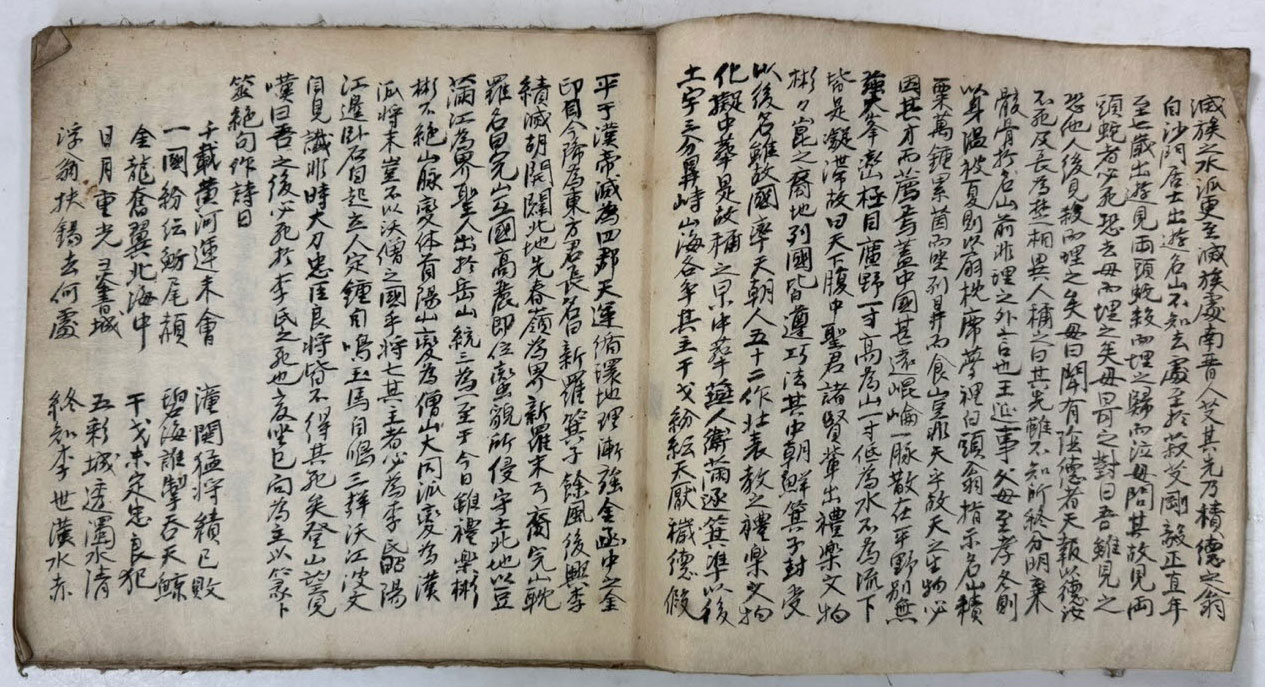 滅族之水派更至滅族處南晋人父其先乃積德之翁
白沙門居士出遊名山不知去處至於叔父剛毅正直年
至七歲出遊見兩頭蛇殺而埋之歸而泣母問其故見兩
頭蛇者必死恐去母而埋之矣母曰奇之對曰吾雖見之
恐他人後見殺而埋之矣母曰聞有陰德者天報以德汝
不死及長為楚相異人稱之曰其先雖不知所終分明棄
骸骨於名山前非理之外言也王延事父母至孝冬則
以身溫被夏則以扇枕席夢裡白頭翁指示名山積
粟萬鍾累茵而坐列鼎而食山皇天乎故天之生物必
因其才而篤焉蓋中國甚遠崐崘一脉散在平野別無
強大峯巒極目廣野一寸高為山一寸低為水不為流下
皆是凝滯故曰天下腹中聖君諸賢輩出禮樂文物
彬々崑之裔地列國皆遵巧法其中朝鮮箕子封受
以後名雖故國率天朝人五十二作壯表教之禮樂文物
化擬中華是故稱之曰小中華 燕人衛滿逐箕準以後
土宇三分鼎峙山海各年其主干戈紛紜天厭穢德假
平于漢帝滅為四郡天運循環地理漸強金函中之金
印自今降為東方君長名曰新羅箕子餘風後興李
績滅胡開闢北地先春嶺為界新羅末弓裔完山甄
羅名曰完山五國高農即位蛮貊所侵守土北地以豆
滿江為界聖人出於岳山統三為一至于今日雖禮樂彬
彬不絕山脉变体首陽山变為僧山大同派变為漢
派將末豈不以沃僧之國乎將亡其主者必為李氏豁陽
江邊卧石自起立人定鍾自鳴玉馬自鳴三拜沃江波文
自見讖非時大刀忠臣良將皆不得其死矣登山望見
嘆曰吾之後必死於李氏之死也夜坐巳向為主以篆下
筮絕句作詩曰
千載黃河運未會 潼関猛將績已敗
一國紛紜魴尾赬 碧海誰掣吞天鯨
金龍奮翼北海中 干戈未定忠良犯
日月重光 城 五彩城透濁水清
浮翁扶錫去何處 終知李世漢水赤